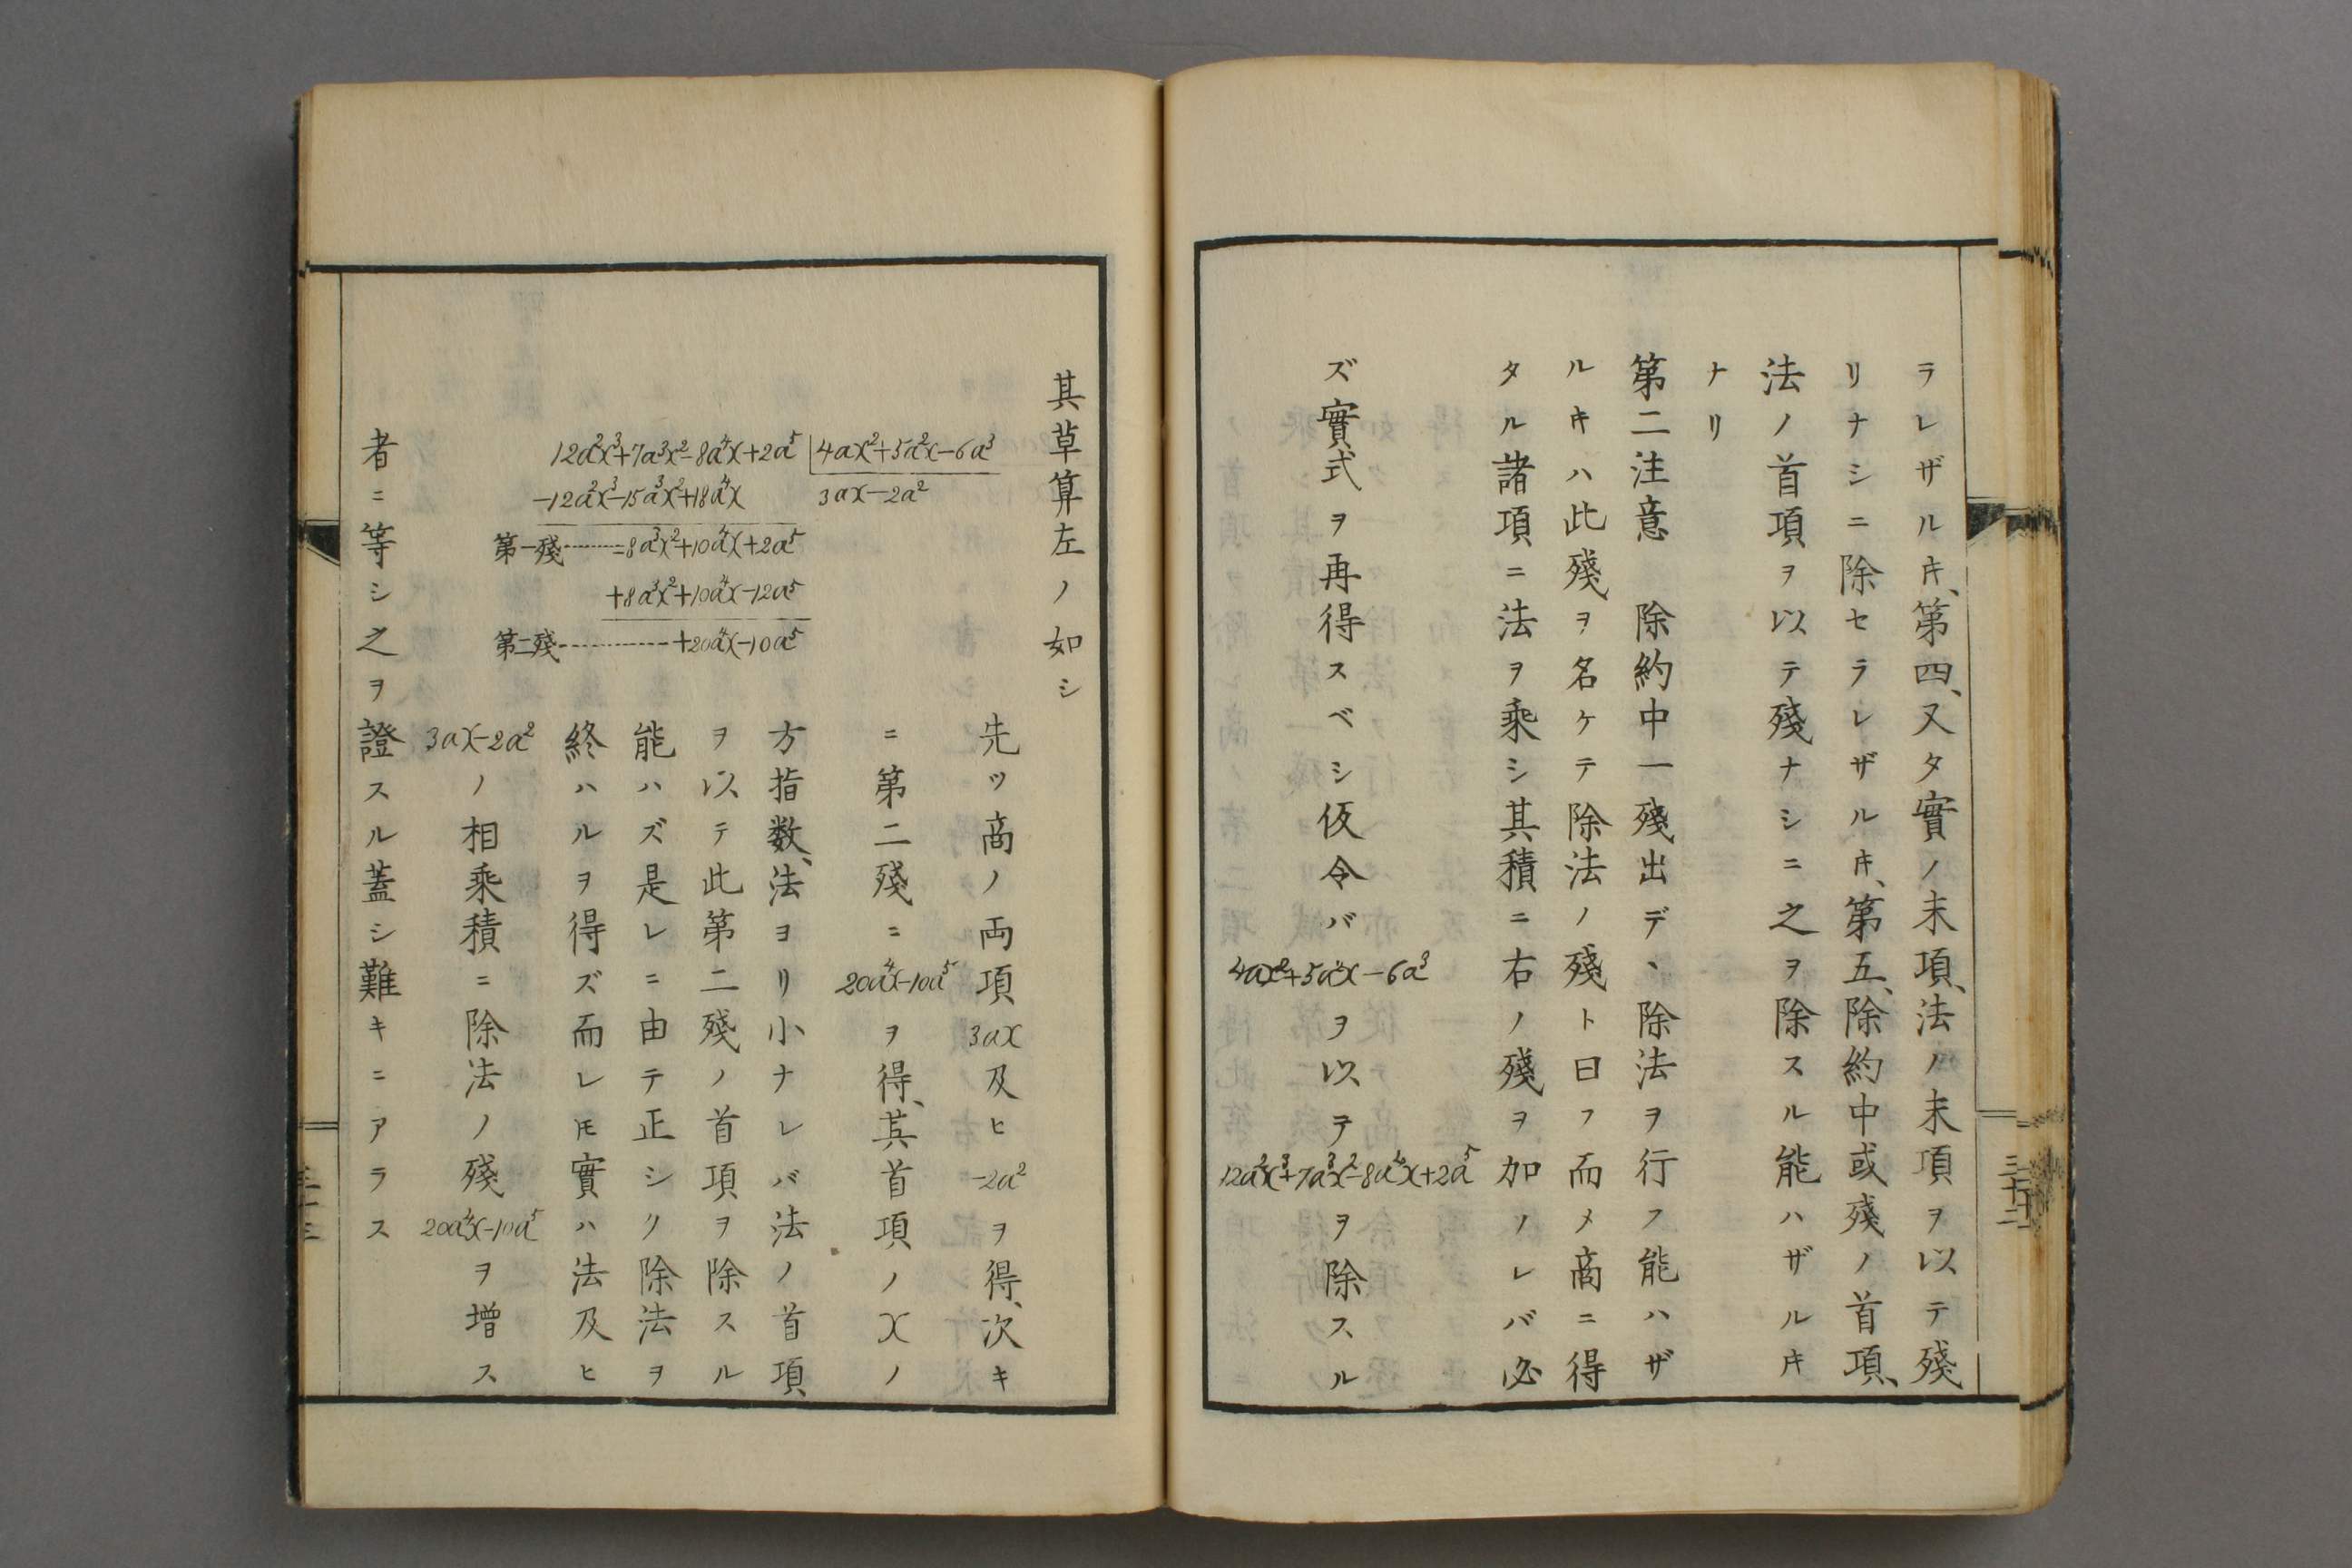 ラレザル𪜈、第四、又タ實ノ末項、法ノ末項ヲ以テ殘
リナシニ除セラレザル𪜈、第五、除約中或殘ノ首項、
法ノ首項ヲ以テ殘ナシニ之ヲ除スル能ハザル𪜈
ナリ
第二注意 除約中一殘出デ、除法ヲ行フ能ハザ
ルキハ此殘ヲ名ケテ除法ノ殘ト曰フ而メ商ニ得
タル諸項ニ法ヲ乘シ其積ニ右ノ殘ヲ加ノレバ必
ズ實式ヲ再得スベシ仮令バ 4ax²+5a²x-6a³ ヲ以テ 12a²x³+7a³x²-8a⁴x+2a⁵ ヲ除スル
三十二
其草算左ノ如シ
12a²x³+7a³x²-8a⁴x+2a⁵ |4ax²+5a²x-6a³
-12a²x³-15a³x²+18a⁴x 3ax-2a²
第一殘………=8a³x²+10a⁴x+2a⁵
+8a³x²+10a⁴x-12a⁵
第二殘…………+20a⁴x-10a⁵
先ツ商ノ両項 3ax 及ヒ -2a² ヲ得、次キ
ニ第二殘ニ 20a⁴x-10a⁵ ヲ得、其首項ノxノ
方指数、法ヨリ小ナレバ法ノ首項
ヲ以テ此第二殘ノ首項ヲ除スル
能ハズ是レニ由テ正シク除法ヲ
終ハルヲ得ズ而レ𪜈實ハ法及ヒ
3ax-2a² ノ相乘積ニ除法ノ殘 20a⁴x-10a⁵ ヲ増ス
者ニ等シ之ヲ證スル蓋シ難キニアラス